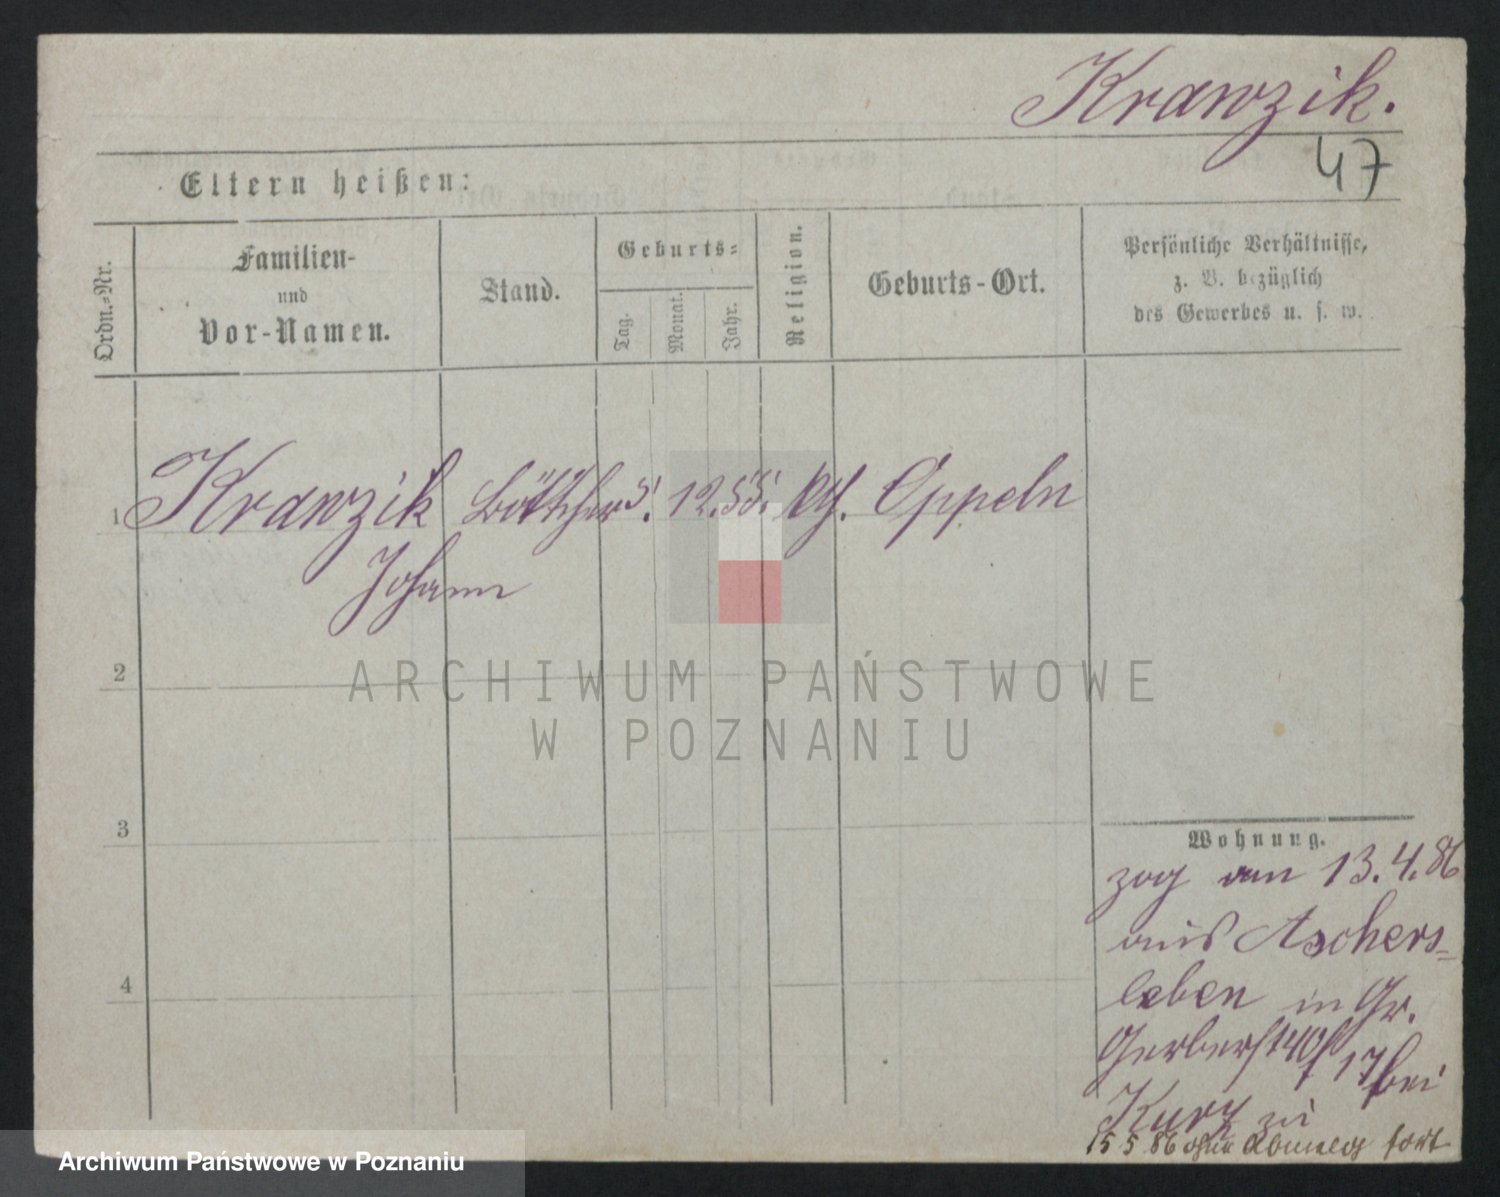 Krawzik.
47
Eltern heißen:
Ordn.-Nr.
Familien-
und
Vor-Namen.
Stand.
Geburts-
Tag.
Monat.
Jahr.
Religion.
Geburts-Ort.
Persönliche Verhältnisse,
z. B. bezüglich
des Gewerbes u. s. w.
1 Krawzik Böttcher 5. 12. 55. kath. Oppeln
Johann
2
ARCHIWUM PAŃSTWOWE
W POZNANIU
3
Wohnung.
zog am 13.4.86
aus Aschers-
leben in Gr.
Gerberst 17 bei
zu
4
15 5 86 ohne Abmeldg fort
Archiwum Państwowe w Poznaniu